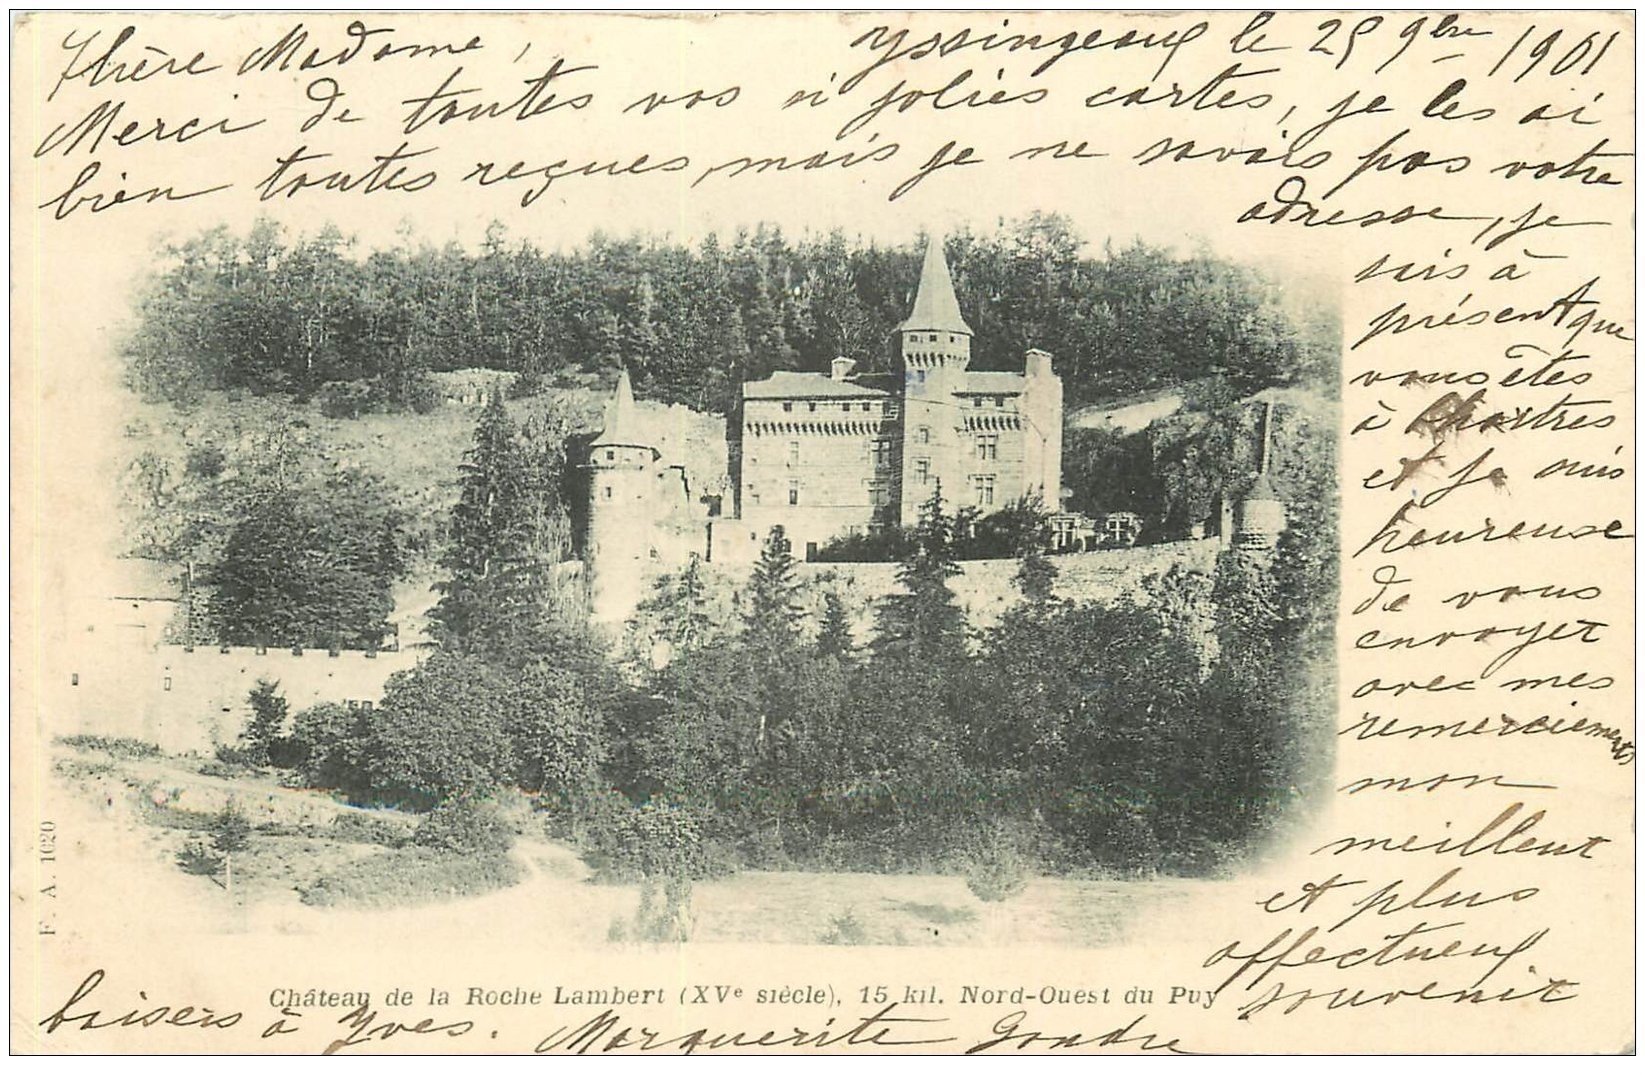 Chère Madame, Yssingeaux le 25 9bre 1901
Merci de toutes vos si jolies cartes, je les ai
bien toutes reçues, mais je ne savais pas votre
adresse, je
sais à
présent que
vous êtes
à Chartres
et je suis
heureuse
de vous
envoyer
avec mes
remerciements
mon
meilleur
et plus
affectueux
souvenir
baisers à Yves. Marguerite Gondre
Château de la Roche Lambert (XVe siècle), 15 kil. Nord-Ouest du Puy
F. A. 1020